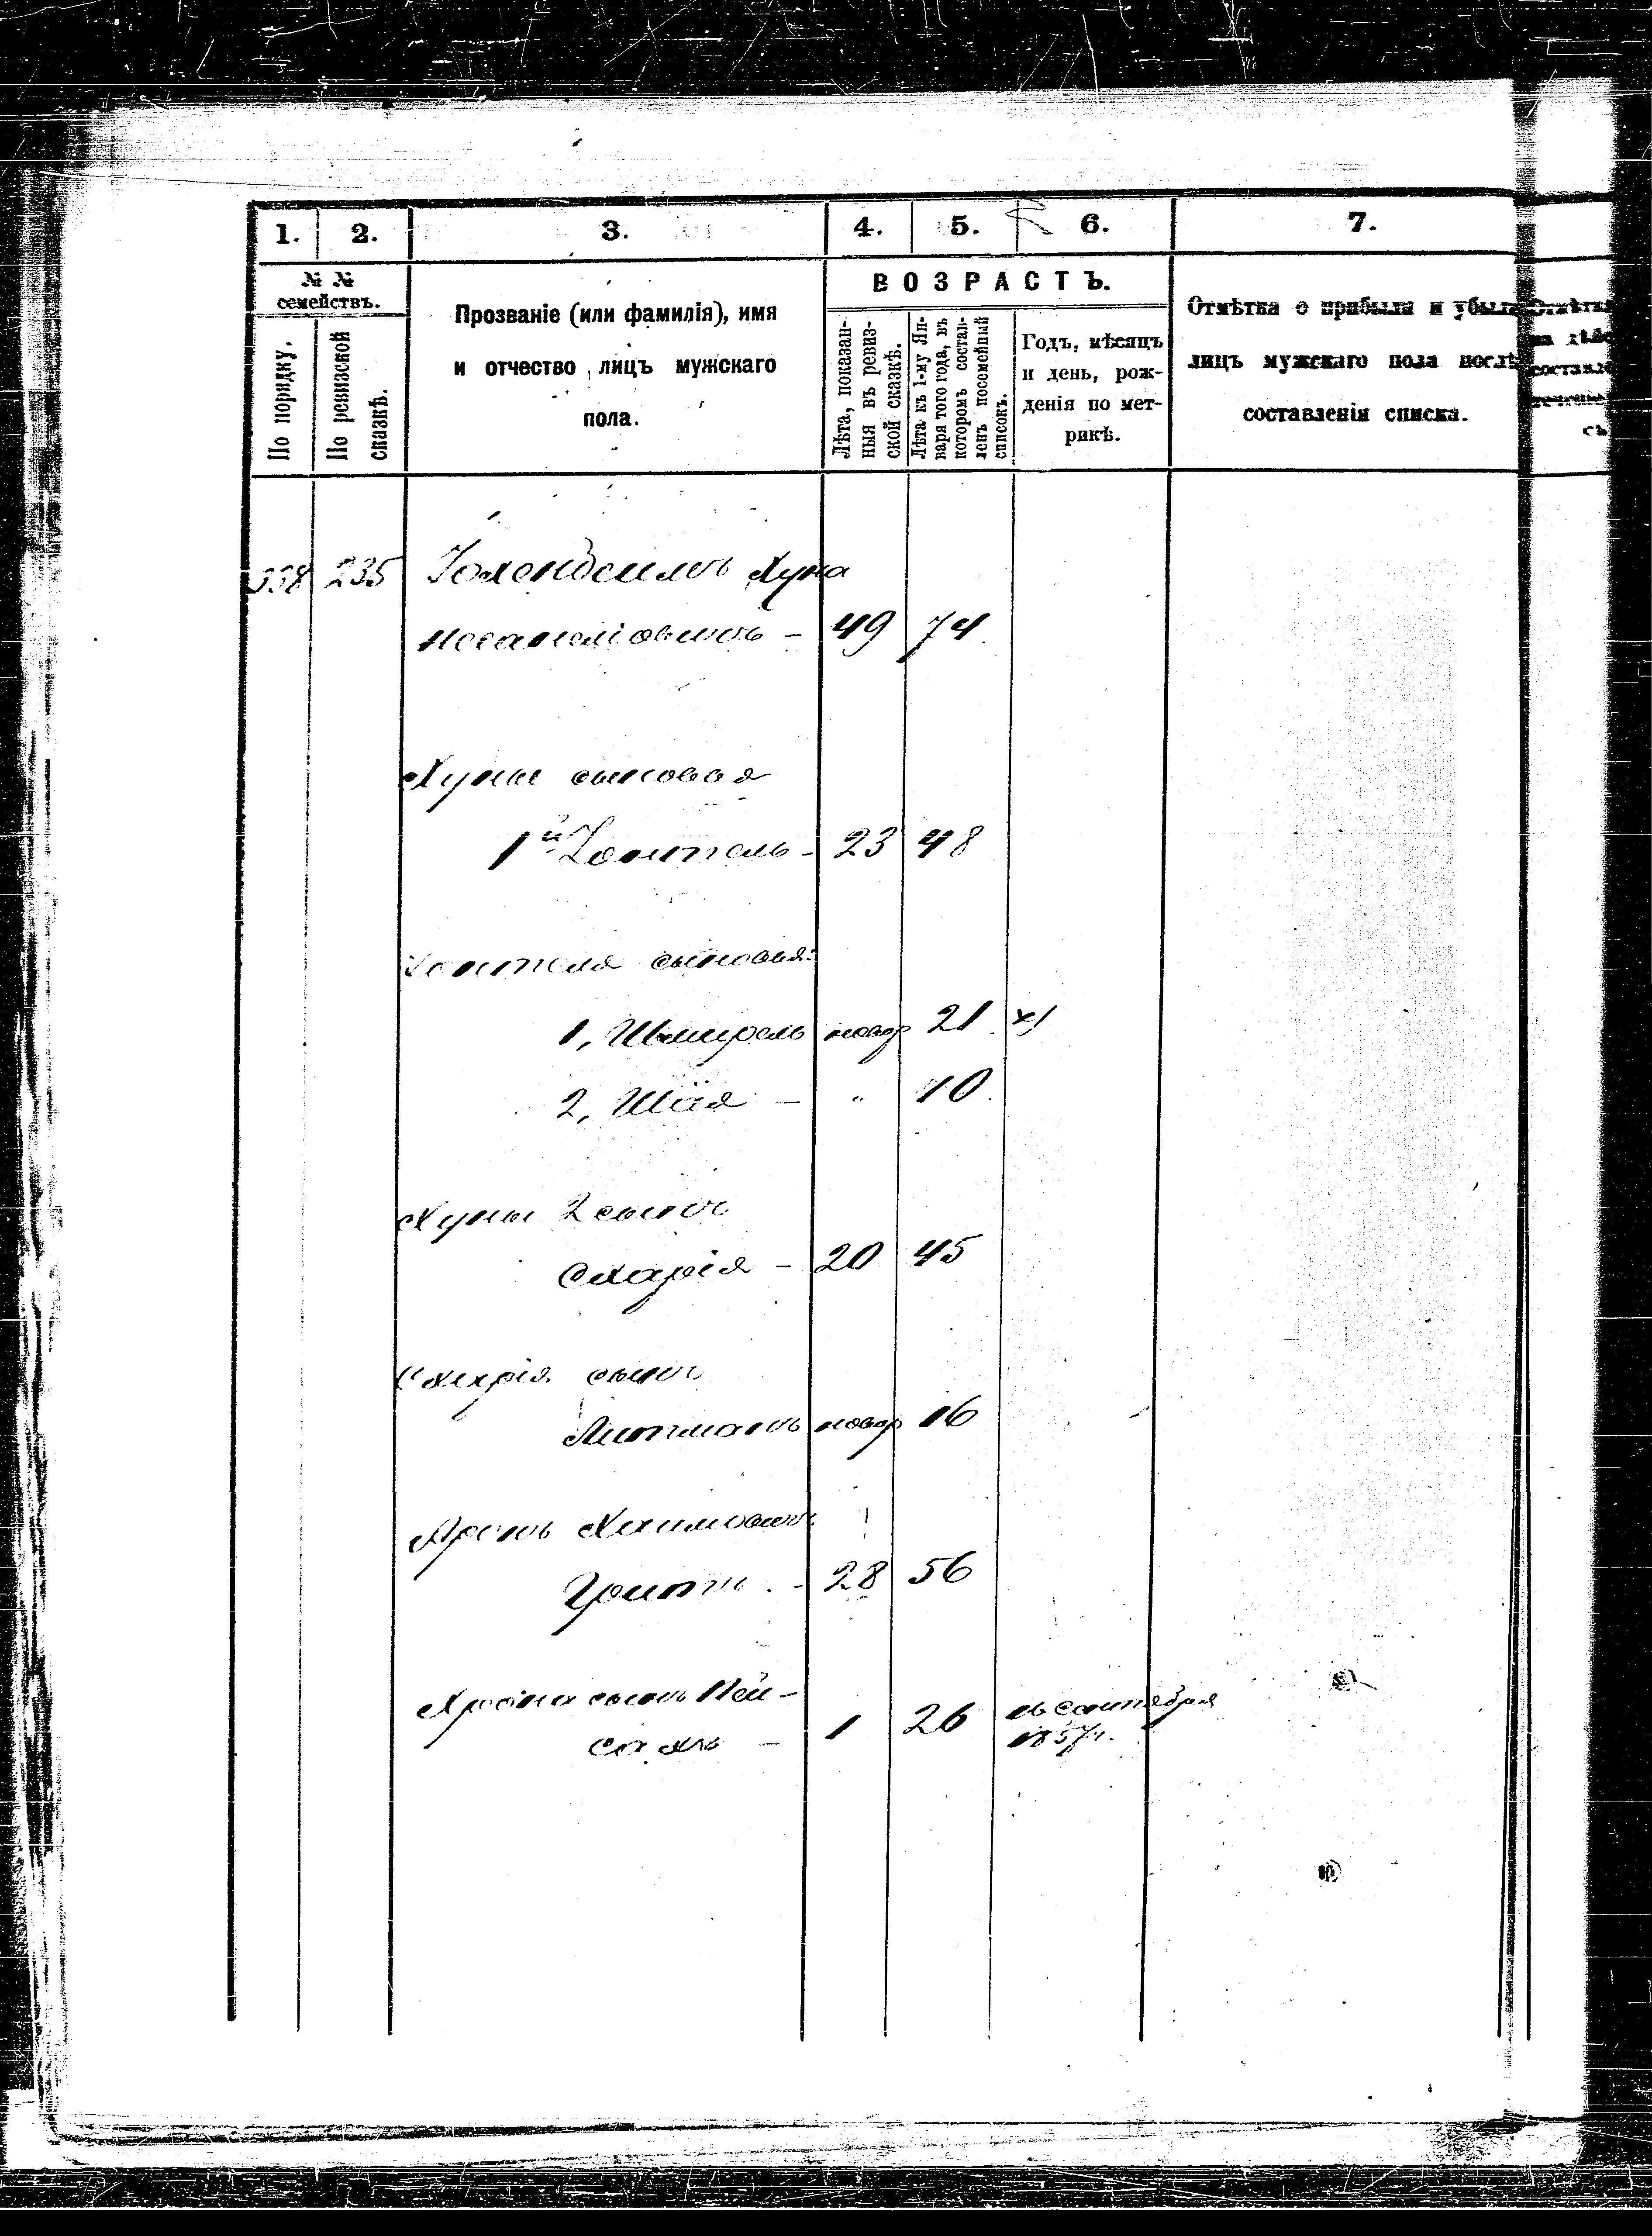 1. 2. 3. 4. 5. 6. 7.
№ № семействъ.
По порядку.
По ревизской сказкѣ.
Прозваніе (или фамилія), имя
и отчество лицъ мужскаго
пола.
ВОЗРАСТЪ.
Лѣта, показан-
ныя въ ревиз-
ской сказкѣ.
Лѣта къ 1-му Ян-
варя того года, въ
которомъ состав-
ленъ посемейный
списокъ.
Годъ, мѣсяцъ
и день, рож-
денія по мет-
рикѣ.
Отмѣтка о прибыли и убыли
лицъ мужскаго пола послѣ
составленія списка.
338 235 Хуна
49 74
Хуны сыновья
1й 23 48
сыновья:
1, Шмироль новор 21 х)
2, Шая — " 10
Хуны 2 сынъ
Схарія — 20 45
Схарія сынъ
Липманъ новор 16
Аронъ Хаимовичъ
28 56
Арона сынъ Пей-
сахъ — 1 26 сентября
1857 г.